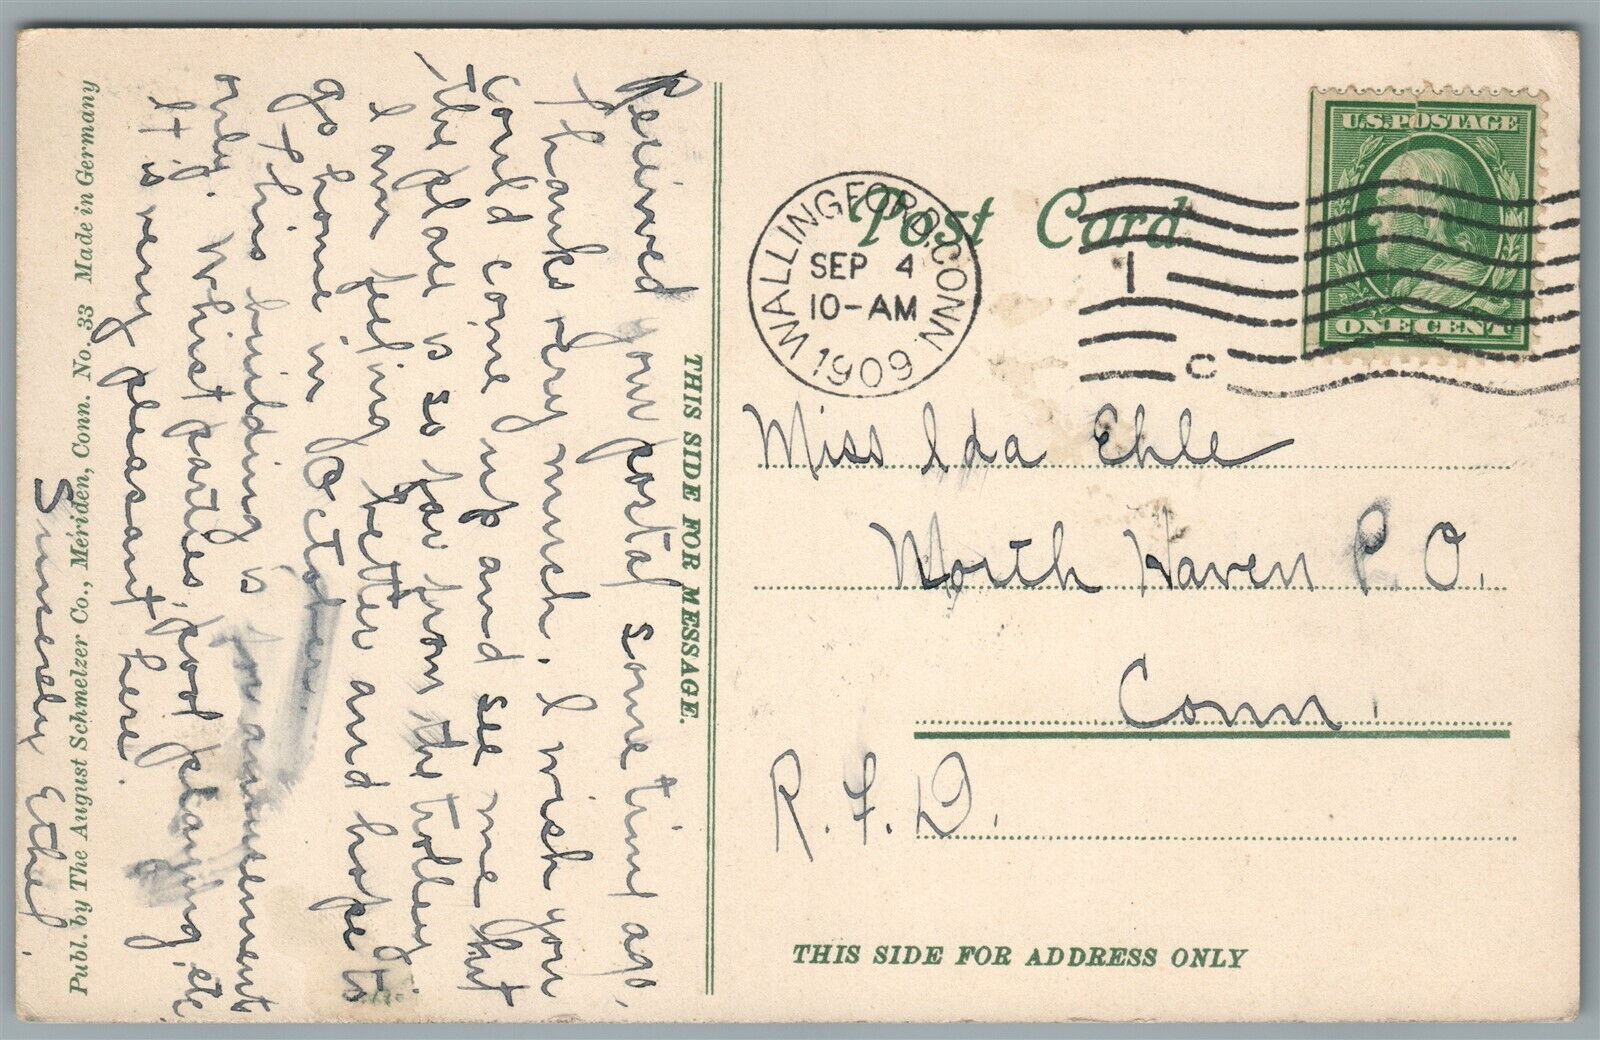 Received your postal some time ago,
Thanks very much. I wish you
could come up and see me but
the place is so far from the trolley.
I am feeling better and hope to
go home in October.
This building is for amusements
only. Whist parties, pool playing, etc.
It is very pleasant here.
Sinserely Ethel.
Publ. by The August Schmelzer Co., Meriden, Conn. No. 33 Made in Germany
THIS SIDE FOR MESSAGE.
Post Card
WALLINGFORD, CONN.
SEP 4
10-AM
1909
1
C
U.S. POSTAGE
ONE CENT
Miss Ida Ehle
North Haven P. O.
Conn.
R. F. D.
THIS SIDE FOR ADDRESS ONLY